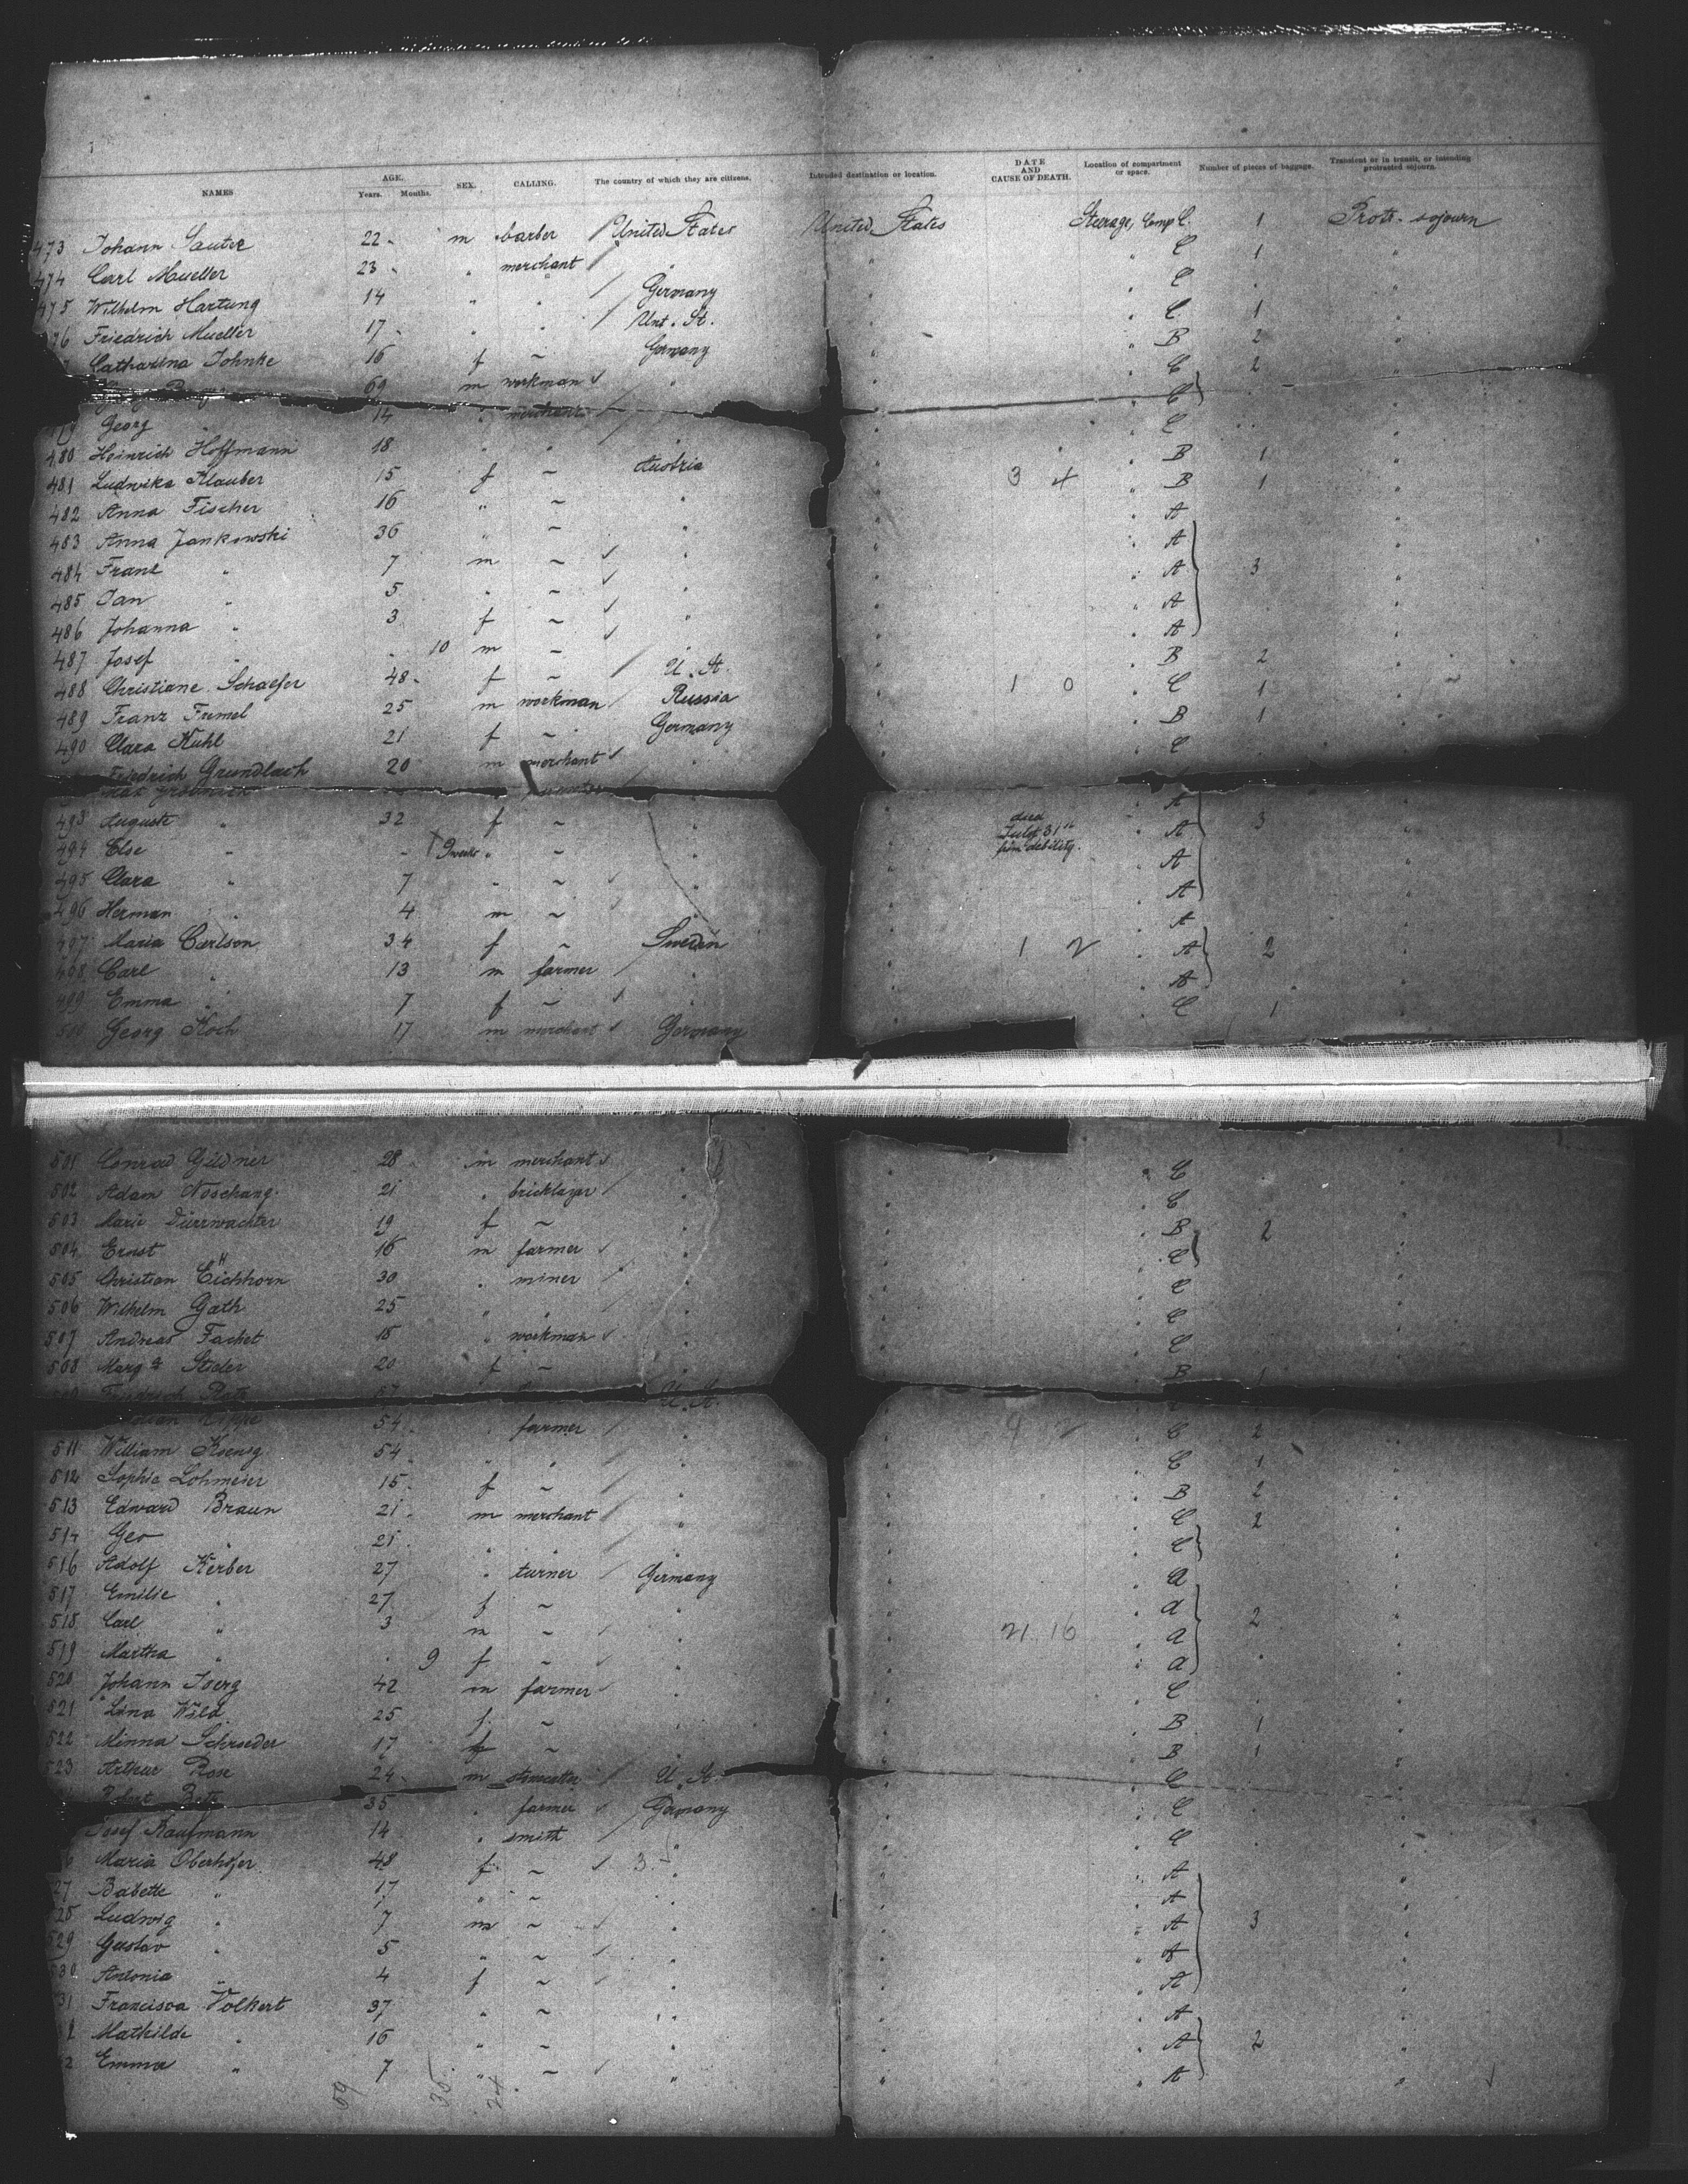 NAMES AGE. Years. Months. SEX. CALLING. The country of which they are citizens. Intended destination or location. DATE AND CAUSE OF DEATH. Location of compartment or space. Number of pieces of baggage. Transient or in transit, or intending protracted sojourn.
473 Johann Sauter 22 m barber United States United States Steerage, Comp C. 1 Protr. sojourn
474 Carl Mueller 23 " merchant " " " C 1 "
475 Wilhelm Hartung 14 " " Germany " " C " "
76 Friedrich Mueller 17 " " Unt. St. " " C 1 "
Catharina Johnke 16 f ~ Germany " " B 2 "
69 m workman " " " C 2 "
Georg " 14 " merchant " " " C "
480 Heinrich Hoffmann 18 " " " " " C " "
481 Ludwika Klauber 15 f ~ Austria " " B 1 "
482 Anna Fischer 16 " ~ " " 3 4 " B 1 "
483 Anna Jankowski 36 " ~ " " " A "
484 Franz " 7 m ~ " " " A "
485 Jan " 5 " ~ " " " A 3 "
486 Johanna " 3 f ~ " " " A "
487 Josef " 10 m ~ " " " A "
488 Christiane Schaefer 48 f ~ U. St. " " B 2 "
489 Franz Fremel 25 m workman Russia " 1 0 " C 1 "
490 Clara Kuhl 21 f ~ Germany " " B 1 "
Friedrich Grundlach 20 m merchant " " " C "
493 Auguste " 32 f ~ " " " A 3 "
494 Else " 9 weeks " ~ " " died July 31st from debility. " A "
495 Clara " 7 " ~ " " " A "
496 Herman " 4 m ~ " " " A "
497 Maria Carlson 34 f ~ Sweden " " A "
498 Carl " 13 m farmer " " 1 2 " A 2 "
499 Emma " 7 f ~ " " " A "
500 Georg Koch 17 m merchant Germany " " C 1 "
501 Conrad Gildner 28 m merchant " " " C "
502 Adam Noschang 21 " bricklayer " " " C "
503 Marie Dürrwachter 19 f ~ " " " B 2 "
504 Ernst " 16 m farmer " " " C "
505 Christian Eichhorn 30 " miner " " " C "
506 Wilhelm Gath 25 " " " " " C "
507 Andreas Fachet 18 " workman " " " C "
508 Marg. Stieler 20 f ~ " " " B 1 "
509 Friedrich 57 U. St.
54 " farmer " " 9 2 " C 2 "
511 William Koenig 54 " " " " " C 1 "
512 Sophie Lohmeier 15 f ~ " " " B 2 "
513 Edward Braun 21 m merchant " " " C 2 "
514 Geo " 21 " " " " " C "
516 Adolf Kerber 27 " turner Germany " " A "
517 Emilie " 27 f ~ " " " A "
518 Carl " 3 m ~ " " 21 16 " A 2 "
519 Martha " 9 f ~ " " " A "
520 Johann Joerg 42 m farmer " " " C "
521 Lina Wild 25 f ~ " " " B 1 "
522 Minna Schroeder 17 f ~ " " " B 1 "
523 Arthur Rose 24 m stonecutter U. St. " " C "
Robert 35 " farmer Germany " " C "
Josef Kaufmann 14 " smith " " " C "
6 Maria Oberhofer 48 f ~ 3 " " " A "
27 Babette " 17 " ~ " " " A "
528 Ludwig " 7 m ~ " " " A 3 "
529 Gustav " 5 " ~ " " " A "
530 Antonia " 4 f ~ " " " A "
31 Francisca Volkert 37 " ~ " " " A "
2 Mathilde " 16 " ~ " " " A 2 "
Emma " 7 " ~ " " " A "
59 35 24